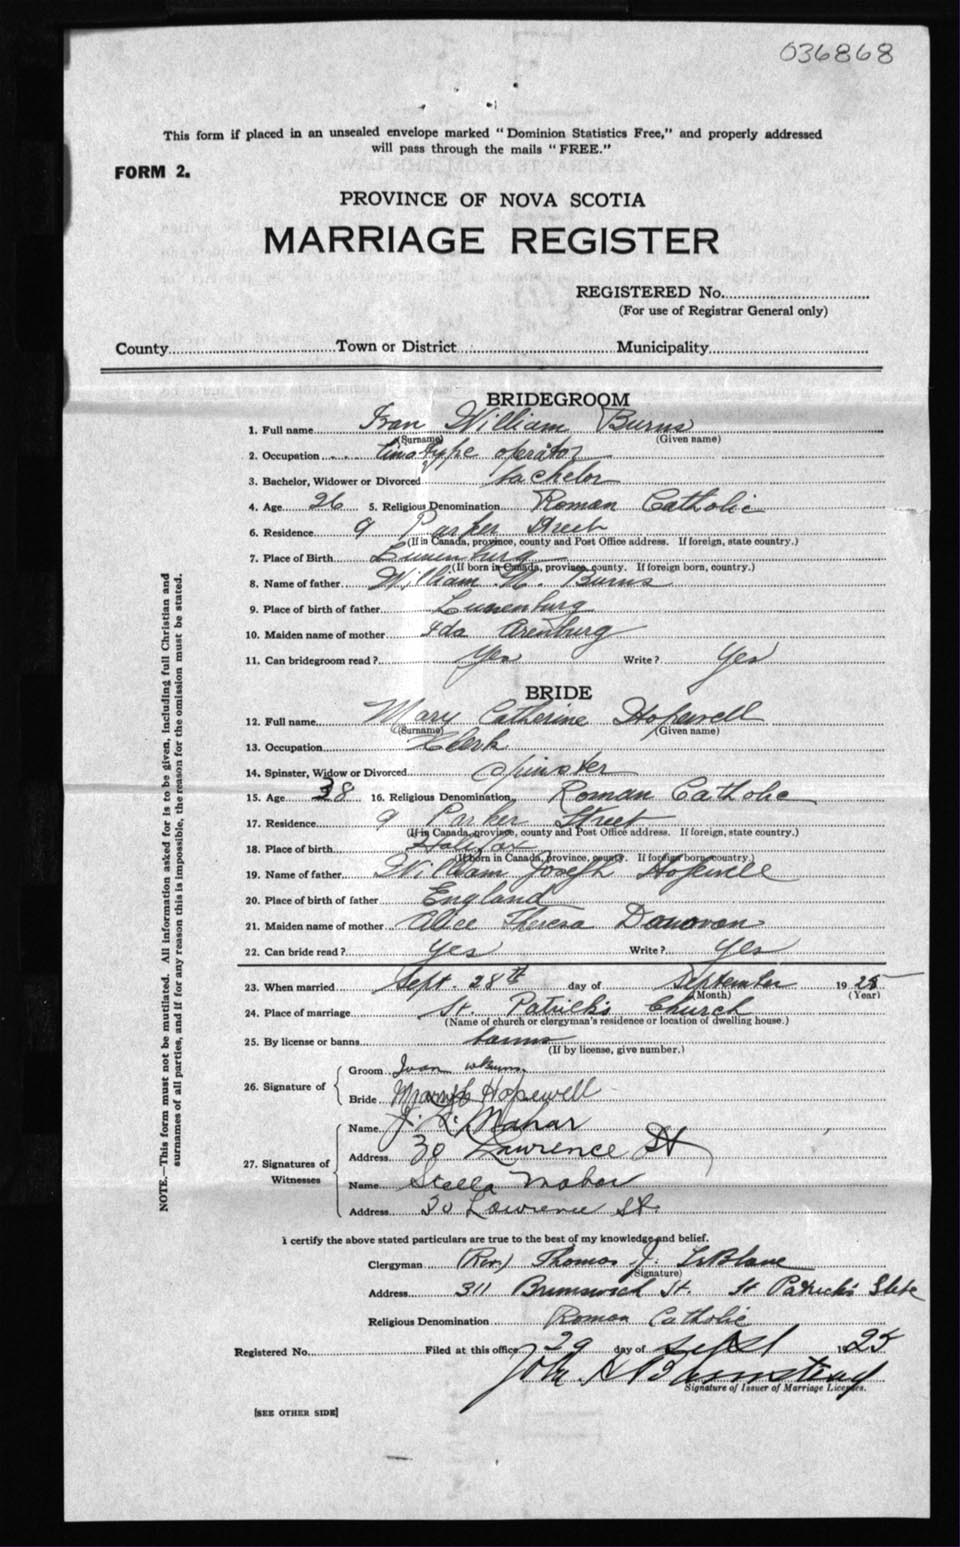 036868
This form if placed in an unsealed envelope marked "Dominion Statistics Free," and properly addressed
will pass through the mails "FREE."
FORM 2.
PROVINCE OF NOVA SCOTIA
MARRIAGE REGISTER
REGISTERED No.
(For use of Registrar General only)
County Town or District Municipality
BRIDEGROOM
1. Full name Ivan William Burns
(Surname) (Given name)
2. Occupation linotype operator
3. Bachelor, Widower or Divorced bachelor
4. Age 26 5. Religious Denomination Roman Catholic
6. Residence 9 Parker Street
(If in Canada, province, county and Post Office address. If foreign, state country.)
7. Place of Birth Lunenburg
(If born in Canada, province, county. If foreign born, country.)
8. Name of father William M. Burns
9. Place of birth of father Lunenburg
10. Maiden name of mother Ada Arenburg
11. Can bridegroom read? Yes Write? Yes
BRIDE
12. Full name Mary Catherine Hopewell
(Surname) (Given name)
13. Occupation Clerk
14. Spinster, Widow or Divorced Spinster
15. Age 38 16. Religious Denomination Roman Catholic
17. Residence 9 Parker Street
(If in Canada, province, county and Post Office address. If foreign, state country.)
18. Place of birth Halifax
(If born in Canada, province, county. If foreign born, country.)
19. Name of father William Joseph Hopewell
20. Place of birth of father England
21. Maiden name of mother Alice Theresa Donovan
22. Can bride read? yes Write? yes
23. When married Sept. 28th day of September 1925
(Month) (Year)
24. Place of marriage St. Patrick's Church
(Name of church or clergyman's residence or location of dwelling house.)
25. By license or banns banns
(If by license, give number.)
26. Signature of
Groom Ivan W Burns
Bride Mary C Hopewell
27. Signatures of Witnesses
Name J. L. Mahar
Address 30 Lawrence St
Name Stella Mahar
Address 30 Lawrence St.
I certify the above stated particulars are true to the best of my knowledge and belief.
Clergyman (Rev.) Thomas J. LeBlanc
(Signature)
Address 311 Brunswick St. St Patrick's Glebe
Religious Denomination Roman Catholic
Registered No. Filed at this office 29 day of Sept 1925
Signature of Issuer of Marriage Licenses.
[SEE OTHER SIDE]
NOTE.—This form must not be mutilated. All information asked for is to be given, including full Christian and
surnames of all parties, and if for any reason this is impossible, the reason for the omission must be stated.